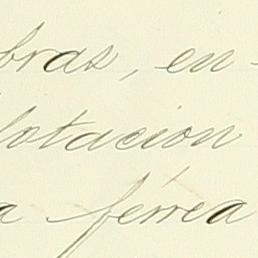 bras, en-
lotacion
a férrea